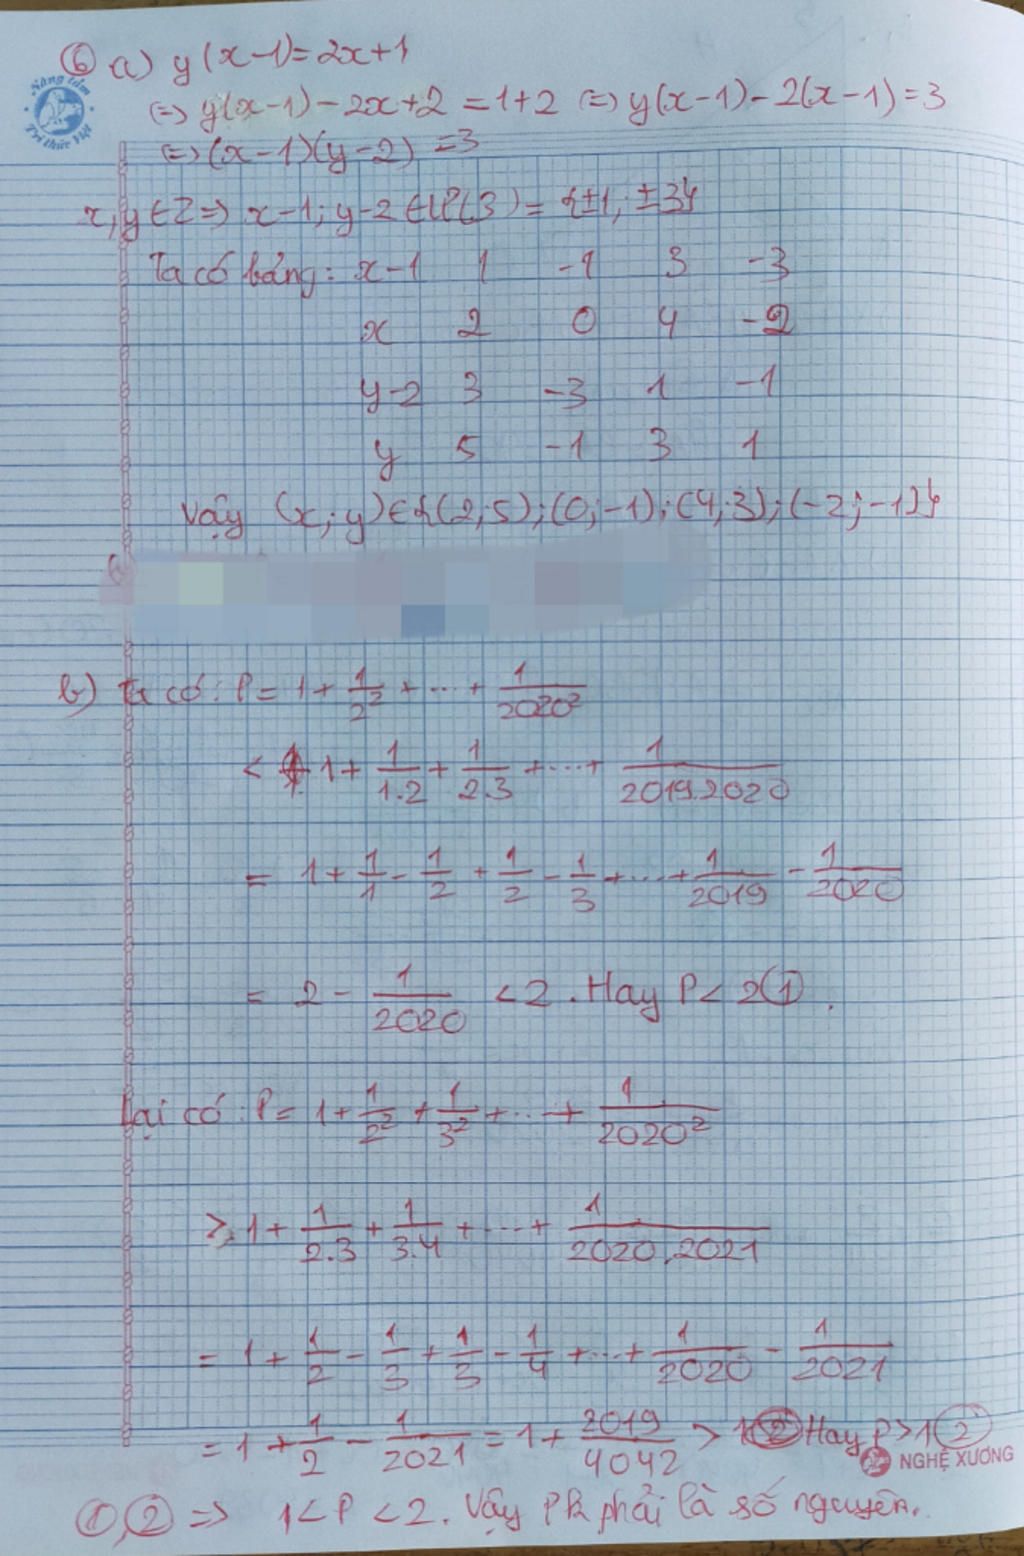 ⑥ a) y(x-1)=2x+1
(=) y(x-1)-2x+2 = 1+2 (=) y(x-1)-2(x-1)=3
(=) (x-1)(y-2) = 3
Nâng tầm
Tri thức Việt
x,y ∈ Z => x-1; y-2 ∈ Ư(3) = {±1; ±3}
Ta có bảng: x-1 1 -1 3 -3
x 2 0 4 -2
y-2 3 -3 1 -1
y 5 -1 3 1
Vậy (x;y) ∈ {(2;5);(0;-1);(4;3);(-2;-1)}
b) Ta có: P = 1 + 1/2² + ... + 1/2020²
< 1 + 1/1.2 + 1/2.3 + ... + 1/2019.2020
= 1 + 1/1 - 1/2 + 1/2 - 1/3 + ... + 1/2019 - 1/2020
= 2 - 1/2020 < 2. Hay P < 2 ①.
Lại có: P = 1 + 1/2² + 1/3² + ... + 1/2020²
> 1 + 1/2.3 + 1/3.4 + ... + 1/2020.2021
= 1 + 1/2 - 1/3 + 1/3 - 1/4 + ... + 1/2020 - 1/2021
= 1 + 1/2 - 1/2021 = 1 + 2019/4042 > 1 Hay P > 1 ②
NGHỆ XƯƠNG
①, ② => 1 < P < 2. Vậy P k phải là số nguyên.